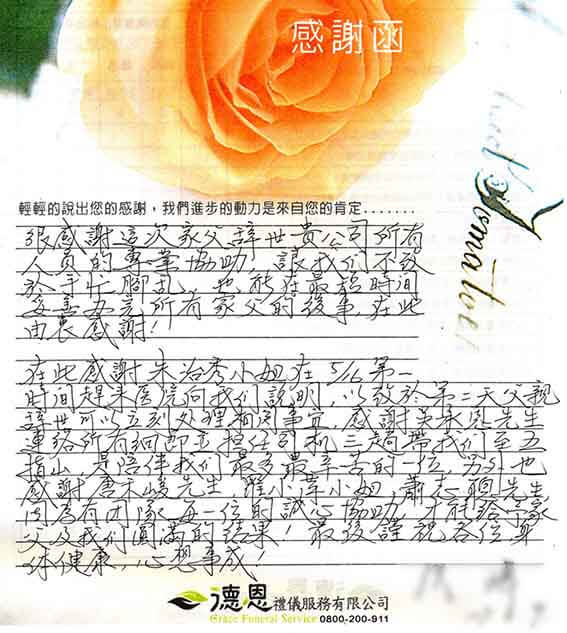 感謝函
輕輕的說出您的感謝，我們進步的動力是來自您的肯定.......
很感謝這次家父辭世貴公司所有
人員的專業協助，讓我们不致
於手忙腳乱，也能在最短時間
妥善完善所有家父的後事，在此
由衷感謝！
在此感謝朱治秀小姐在5/16第一
時間趕來医院向我们說明，以致於第二天父親
辞世可以立刻处理相関事宜，感謝吳承恩先生
連絡所有細節並担任司机三趟帶我们至五
指山，是陪伴我们最多最辛苦的一位，另外也
感謝唐禾峻先生 小苹小姐，蕭志 先生
因為有团隊每一位的誠心協助，才能給予家
父及我们圓满的結果！最後謹祝各位身
体健康，心想事成！
德恩禮儀服務有限公司
Grace Funeral Service 0800-200-911